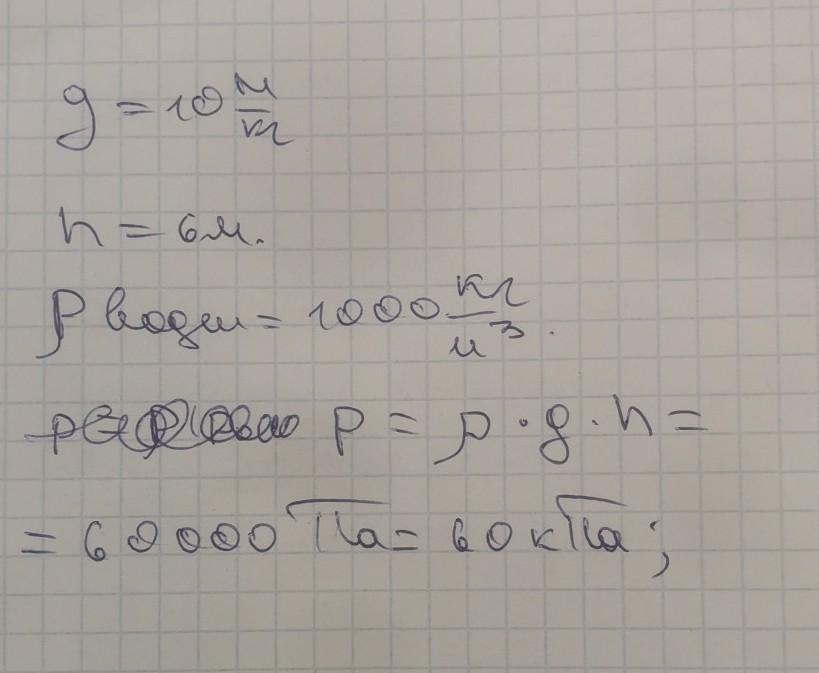 g = 10 Н/кг
h = 6м.
ρ воды = 1000 кг/м³.
p = ρ · g · h =
= 60000 Па = 60 кПа;